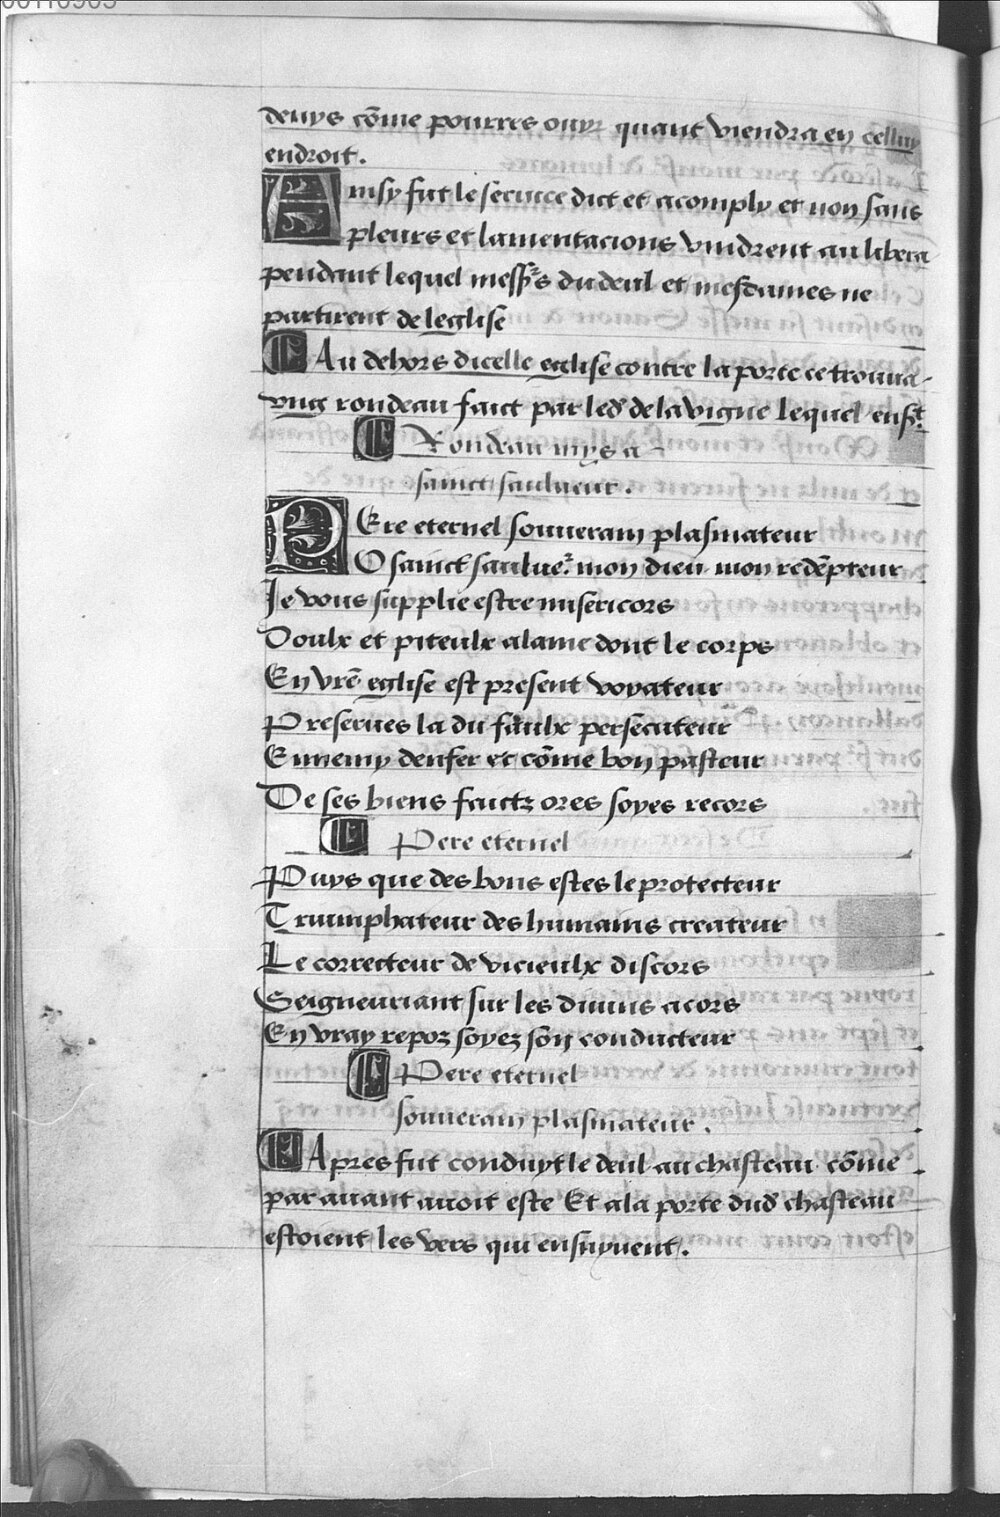 denys cõme pourres ouyr quant viendra en celluy
endroit.
Ainsy fut le seruice dict et acomply et non sans
pleurs et lamentacions vindrent au libera
pendant lequel messrs du deul et mesdames ne
partirent de leglise
Au dehors dicelle eglise contre la porte ce trouua
vng rondeau faict par led de la vigne lequel enst
Rondeau mys a
sainct saulueur.
PEre eternel souuerain plasmateur
O sainct saulue mon dieu mon redẽpteur
Je vous supplie estre misericors
Doulx et piteulx alame dont le corps
En vrẽ eglise est present voyateur
Preserues la du faulx persecuteur
Ennemy denfer et cõme bon pasteur
De ses biens faictz ores soyes recors
Pere eternel
Puys que des bons estes le protecteur
Triumphateur des humains createur
Le correcteur de vicieulx discors
Seigneuriant sur les diuins acors
En vray repoz soyez son conducteur
Pere eternel
souuerain plasmateur.
Apres fut conduyt le deul au chasteau cõme
par auant auoit este Et ala porte dud chasteau
estoient les vers qui ensuyuent.